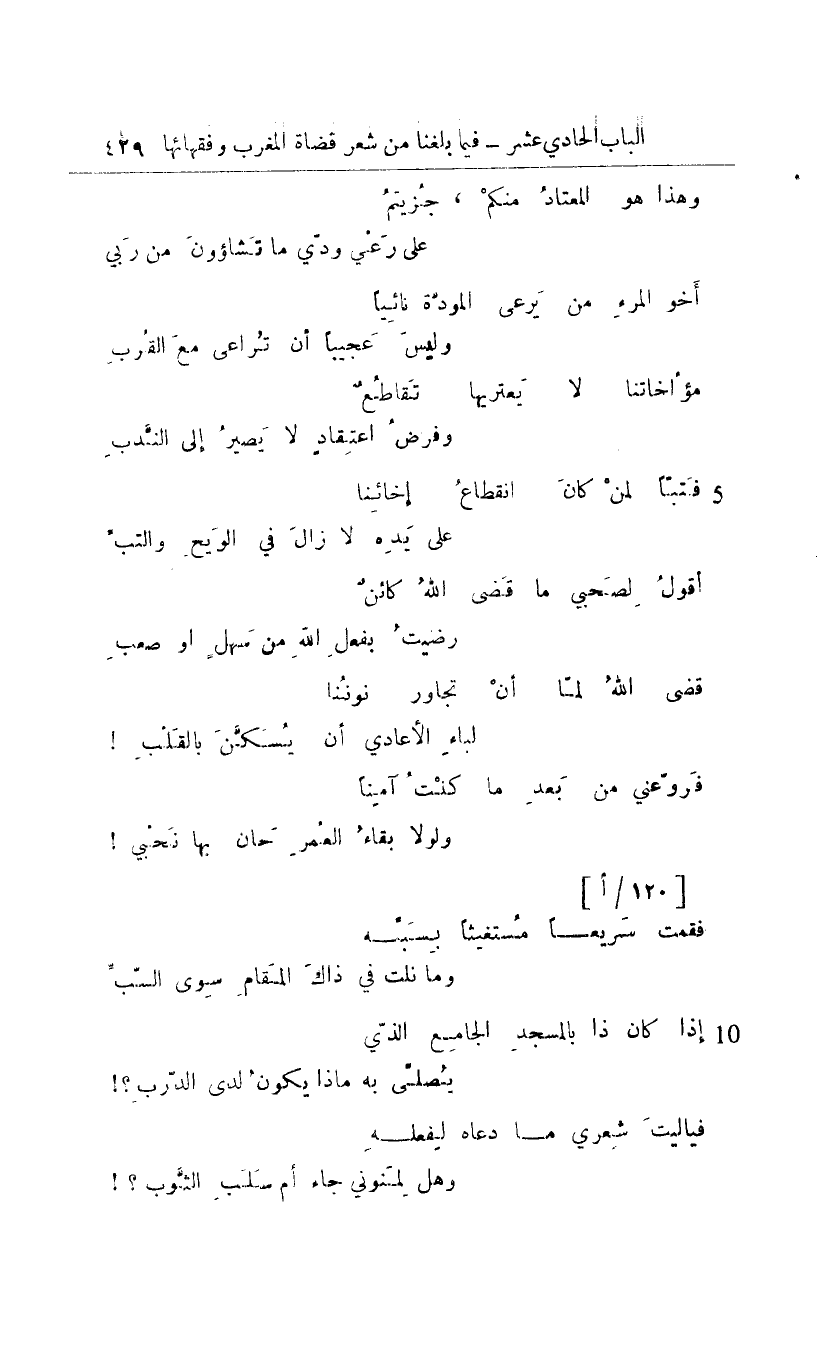 الباب الحادي عشر – فيما بلغنا من شعر قضاة المغرب وفقهائها ٤٢٩
وهذا هو المعتادُ منكمْ ، جُزيتمُ
على رَعْيِ ودّي ما تَشاؤونَ من رَبي
أَخو المرءِ من يَرعى المودّة نائِياً
وليسَ عَجيباً أن تُراعى معَ القُربِ
مؤاخاتنا لا يَعتريها تَقاطُعٌ
وفرضُ اعتِقادٍ لا يَصيرُ إلى النَّدبِ
5 فَتبّاً لمنْ كانَ انقطاعُ إخائِنا
على يَدِه لا زالَ في الوَيحِ والتبِّ
أقولُ لِصَحبي ما قَضى اللهُ كائنٌ
رضيتُ بفعلِ اللهِ من سَهلٍ او صعبِ
قضى اللهُ لمّا أنْ تجاور نونُنا
لباءِ الأعادي أن يُسَكَّنَ بالقَلْبِ !
فَروّعني من بَعدِ ما كنْتُ آمِناً
ولولا بقاءُ العُمرِ حَان بها نَحْبي !
[ ١٢٠/أ ]
فقمت سَريعـــاً مُستغيثاً بِسَبّـــه
وما نلت في ذاكَ المَقامِ سِوى السّبِّ
10 إذا كان ذا بالمسجدِ الجامِع الذّي
يُصلّى به ماذا يكونُ لدى الدّربِ؟!
فياليتَ شِعري مـــا دعاه لِفعلـــهِ
وهل لِمَنوني جاء أم سَلَبِ الثَّوب ؟ !